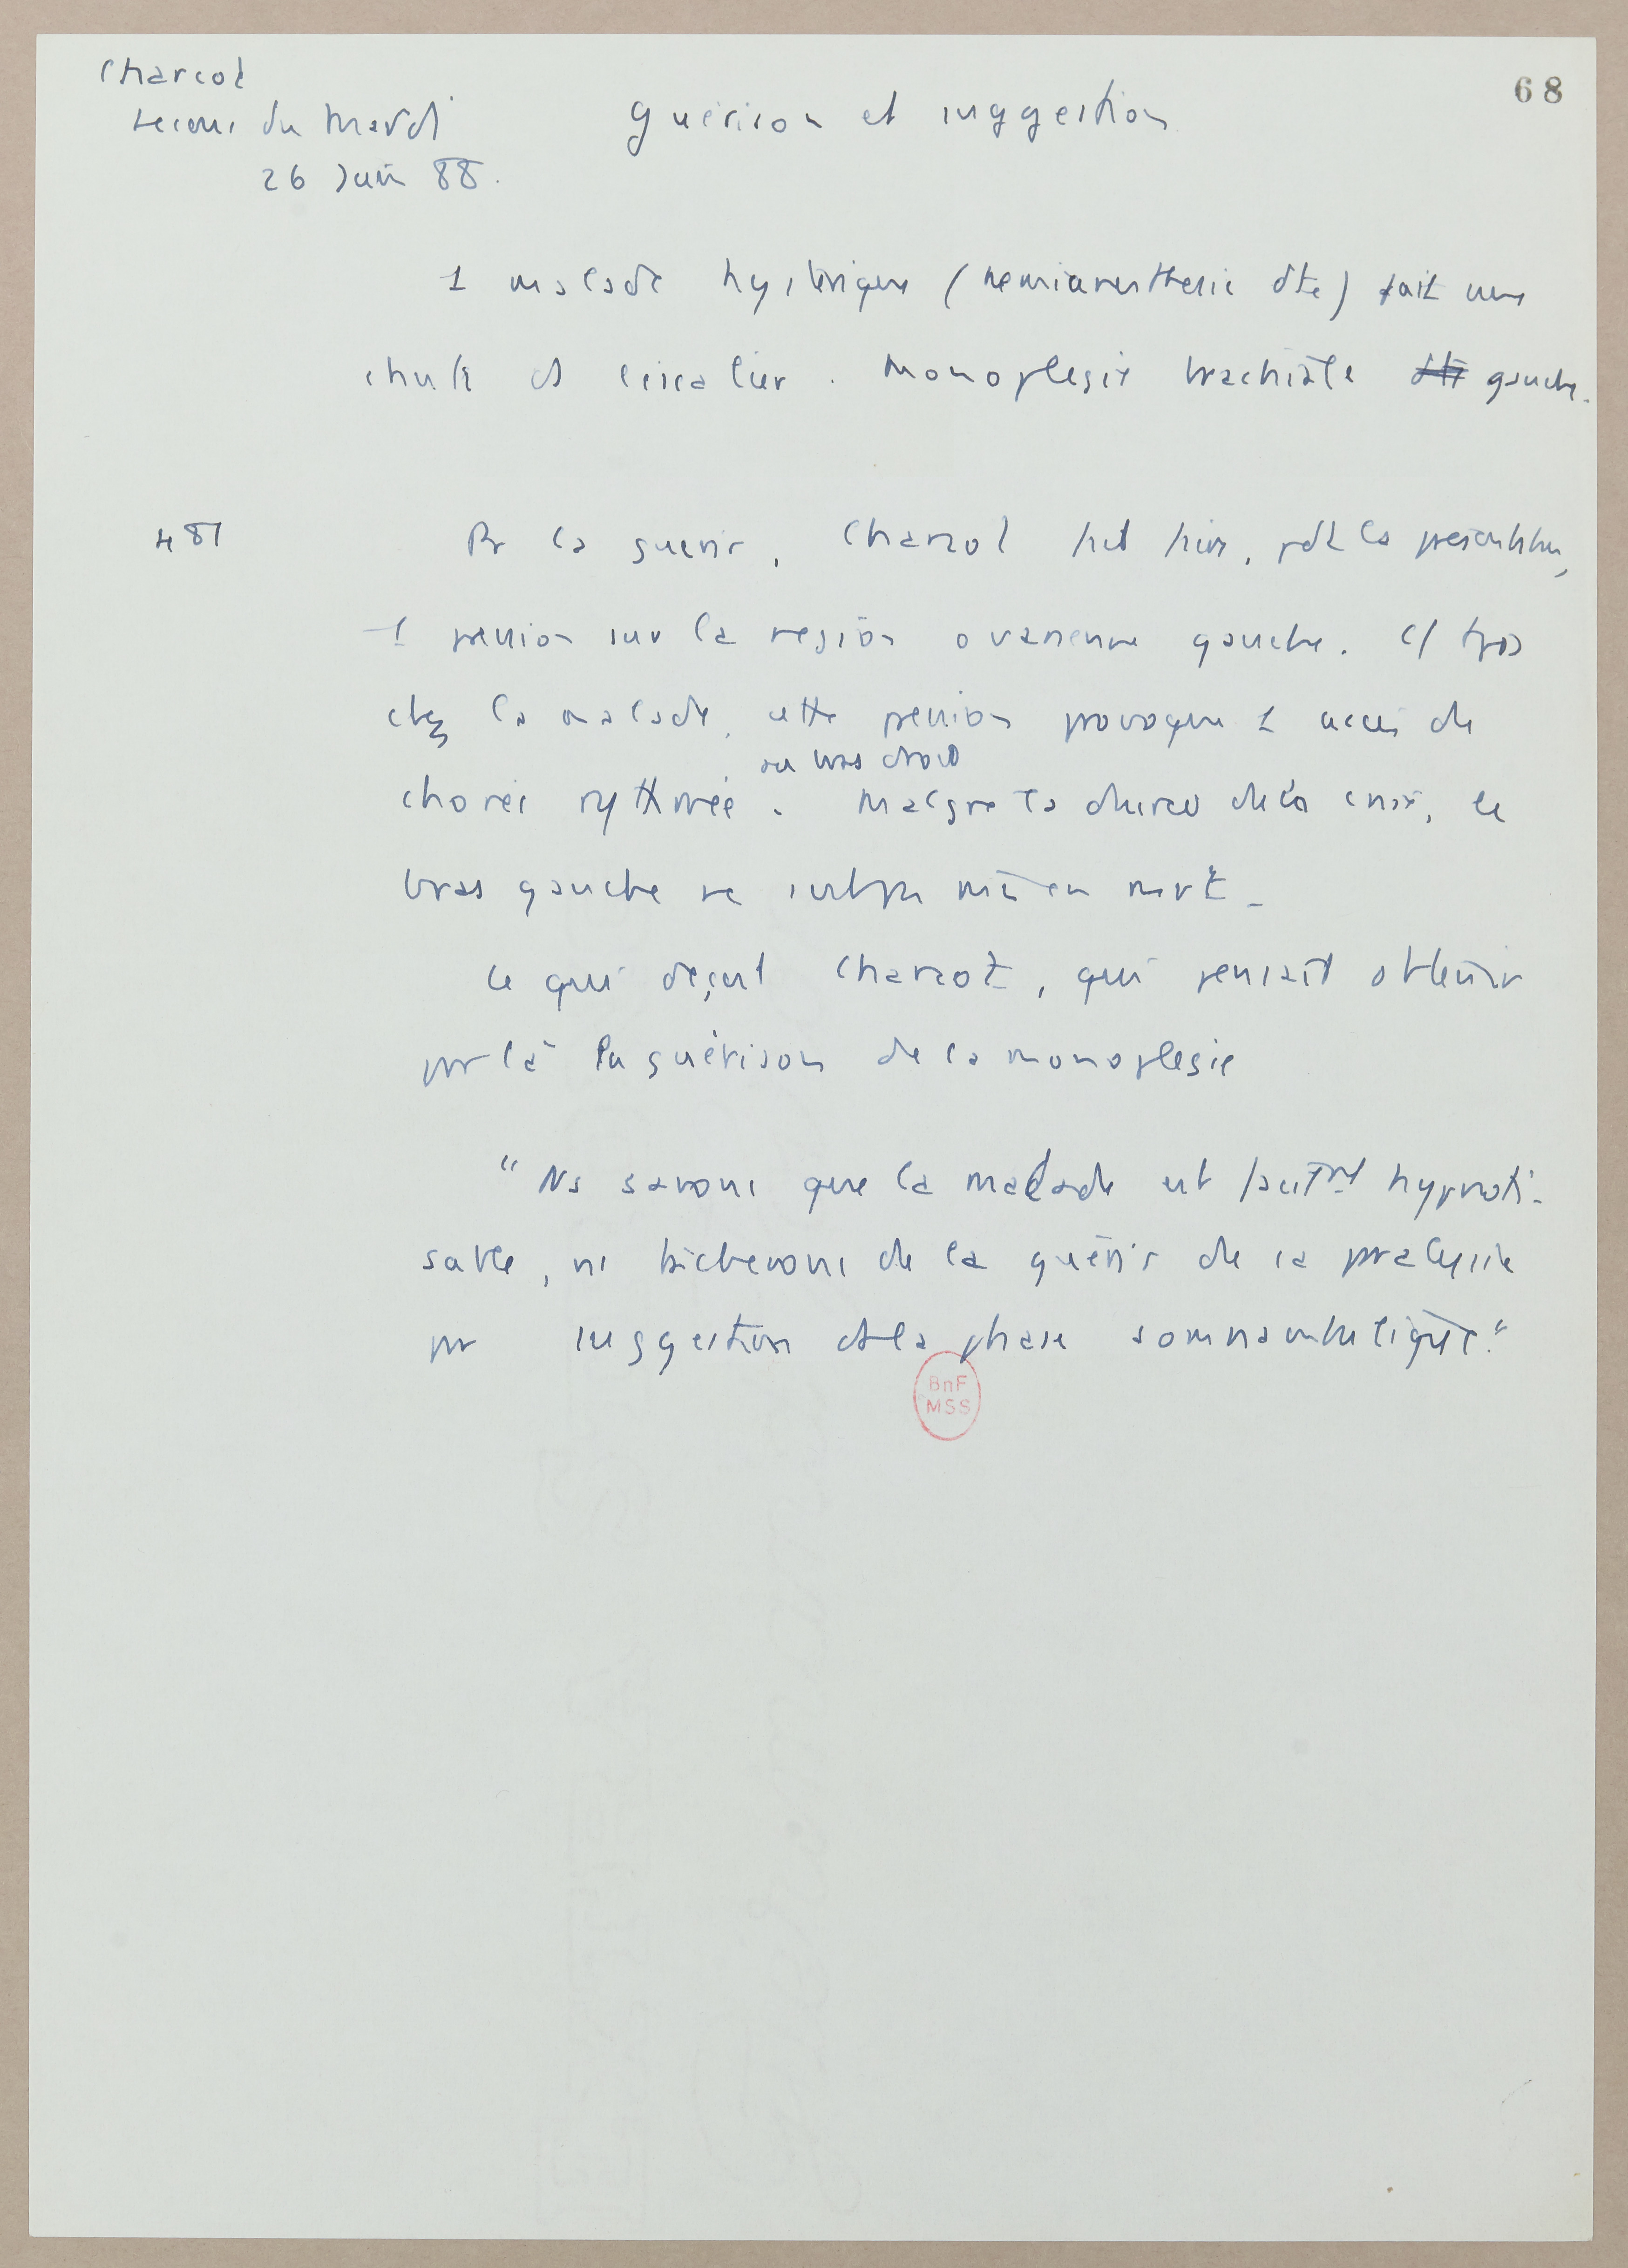 Charcot
Leçons du Mardi
26 Juin 88.
guérison et suggestion
68
1 malade hystérique (hemianesthesie dte) fait une
chute ds l'escalier. Monoplegie brachiale dte gauche.
481
Pr la guérir, Charcot fait faire, pdt la présentation,
1 pression sur la region ovarienne gauche. C/ tjrs
chez la malade, cette pression provoque 1 accès de
au bras droit
choree rythmée. Malgré la durée de la crise, le
bras gauche ne
Ce qui deçut Charcot, qui pensait obtenir
par là la guérison de la monoplegie
"Ns savons que la malade est hypnoti-
sable, ns tâcherons de la guérir de sa paralysie
par suggestion ds la phase somnambulique."
BnF
MSS